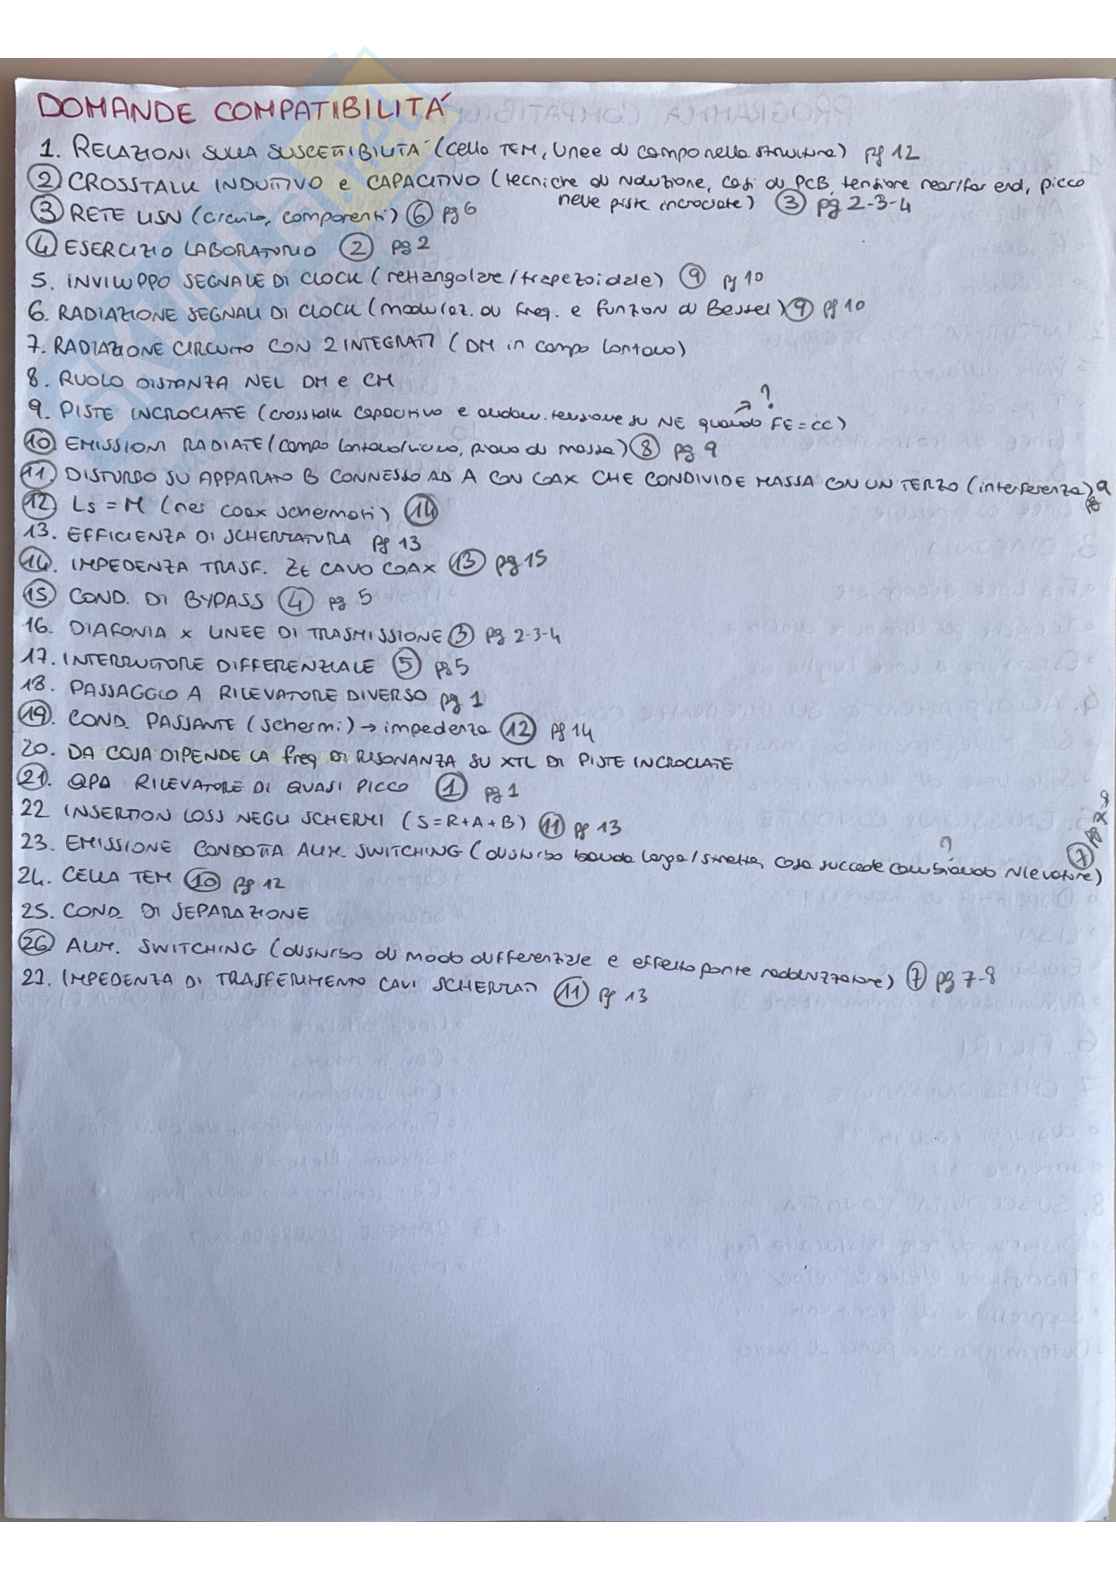 DOMANDE COMPATIBILITÁ
1. RELAZIONI SULLA SUSCETTIBILITA' (cella TEM, linee di campo nella struttura) pg 12
2 CROSSTALK INDUTTIVO e CAPACITIVO (tecniche di riduzione, casi di PCB, tensione near/far end, picco
nelle piste incrociate) 3 pg 2-3-4
3 RETE LISN (circuito, componenti) 6 pg 6
4 ESERCIZIO LABORATORIO 2 pg 2
5. INVILUPPO SEGNALE DI CLOCK (rettangolare/trapezoidale) 9 pg 10
6. RADIAZIONE SEGNALI DI CLOCK (modulaz. di freq. e funzioni di Bessel) 9 pg 10
7. RADIAZIONE CIRCUITO CON 2 INTEGRATI (DM in campo lontano)
8. RUOLO DISTANZA NEL DM e CM
9. PISTE INCROCIATE (crosstalk capacitivo e andam. tensione su NE quando FE=CC) ?
10 EMISSIONI RADIATE (campo lontano/vicino, piano di massa) 8 pg 9
11. DISTURBO SU APPARATO B CONNESSO AD A CON COAX CHE CONDIVIDE MASSA CON UN TERZO (interferenza) pg 9
12 Ls = M (nei coax schermati) 14
13. EFFICIENZA DI SCHERMATURA pg 13
14. IMPEDENZA TRASF. Zt CAVO COAX 13 pg 15
15 COND. DI BYPASS 4 pg 5
16. DIAFONIA x LINEE DI TRASMISSIONE 3 pg 2-3-4
17. INTERRUTTORE DIFFERENZIALE 5 pg 5
18. PASSAGGIO A RILEVATORE DIVERSO pg 1
19. COND. PASSANTE (schermi) → impedenza 12 pg 14
20. DA COSA DIPENDE LA freq DI RISONANZA SU XTL DI PISTE INCROCIATE
21. QPD RILEVATORE DI QUASI PICCO 1 pg 1
22 INSERTION LOSS NEGLI SCHERMI (S=R+A+B) 11 pg 13
23. EMISSIONE CONDOTTA ALIM. SWITCHING (disturbo banda larga/stretta, cosa succede cambiando rilevatore) ? 7 pg 7-8
24. CELLA TEM 10 pg 12
25. COND. DI SEPARAZIONE
26 ALIM. SWITCHING (disturbo di modo differenziale e effetto ponte raddrizzatore) 7 pg 7-8
27. IMPEDENZA DI TRASFERIMENTO CAVI SCHERMATI 11 pg 13